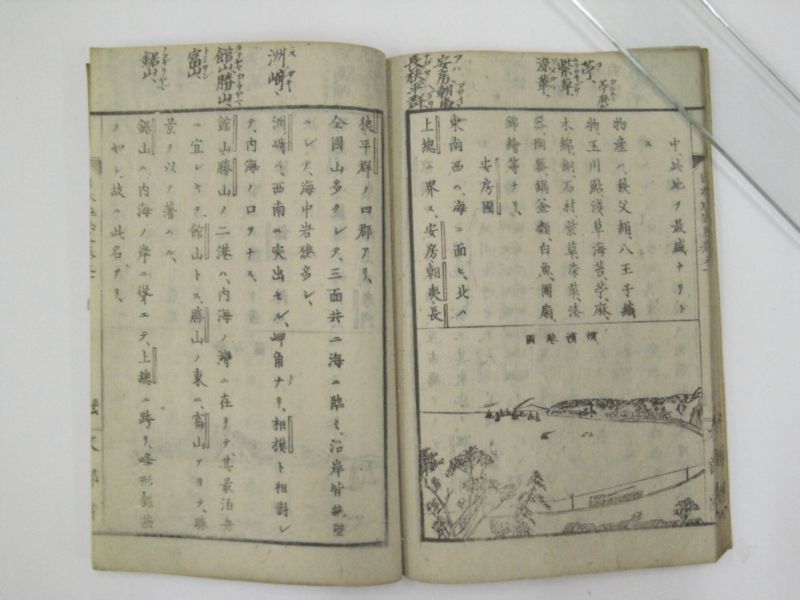 中、此地ヲ最盛ナリト
ス
物産ハ、秩父絹、八王子織
物、玉川鮎、浅草海苔、苧、麻、
木綿、銅、石材、紫草、藻草、漆
器、陶器、鍋釜類、白魚、團扇、
錦繪等ナリ、
安房國
東南西ハ、海ニ面シ、北ハ
上總ニ界ス、安房、朝夷、長
苧
紫草
安房
朝夷
長狹
平群
横濱港圖
狹平群ノ四郡アリ、
全國山多クシテ、三面共ニ海ニ臨ミ、沿岸皆絶壁
ニシテ、海中岩礁多シ、
洲崎ハ、西南ニ突出セル、岬角ナリ、相摸ト相對シ
テ、内海ノ口ヲナス、
館山勝山ノ二港ハ、内海ノ灣ニ在リテ、其最泊舟
ニ宜シキヲ、館山トス、勝山ノ東ニ、富山アリテ、勝
景ヲ以テ著ハル、
鋸山ハ、内海ノ岸ニ聳エテ、上總ニ跨リ、峰形鋸齒
ノ如シ、故ニ此名アリ、
洲崎
館山勝山
富山
鋸山